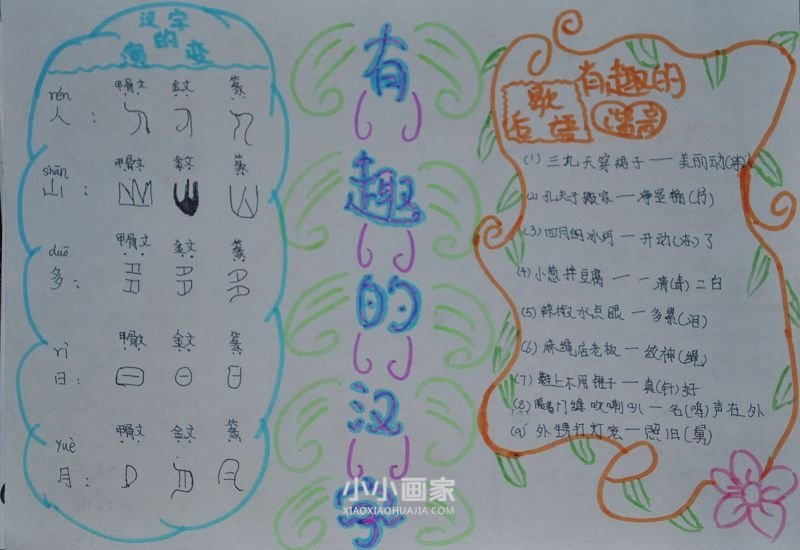 汉字
的
演变
rén 甲骨文 金文 篆
人：
shān 甲骨文 金文 篆
山：
duō 甲骨文 金文 篆
多：
rì 甲骨文 金文 篆
日：
yuè 甲骨文 金文 篆
月：
有
趣
的
汉
字
有趣的
谐音
歇
后语
(1) 三九天穿裙子一美丽动(冻)人
(2) 孔夫子搬家一净是输(书)
(3) 四月的冰河一开动(冻)了
(4) 小葱拌豆腐一一清(青)二白
(5) 辣椒水点眼一多累(泪)
(6) 麻绳店老板一绞神(绳)
(7) 鞋上不用锥子一真(针)好
(8) 隔着门缝吹喇叭一名(鸣)声在外
(9) 外甥打灯笼一照旧(舅)
小小画家
XIAOXIAOHUAJIA.COM